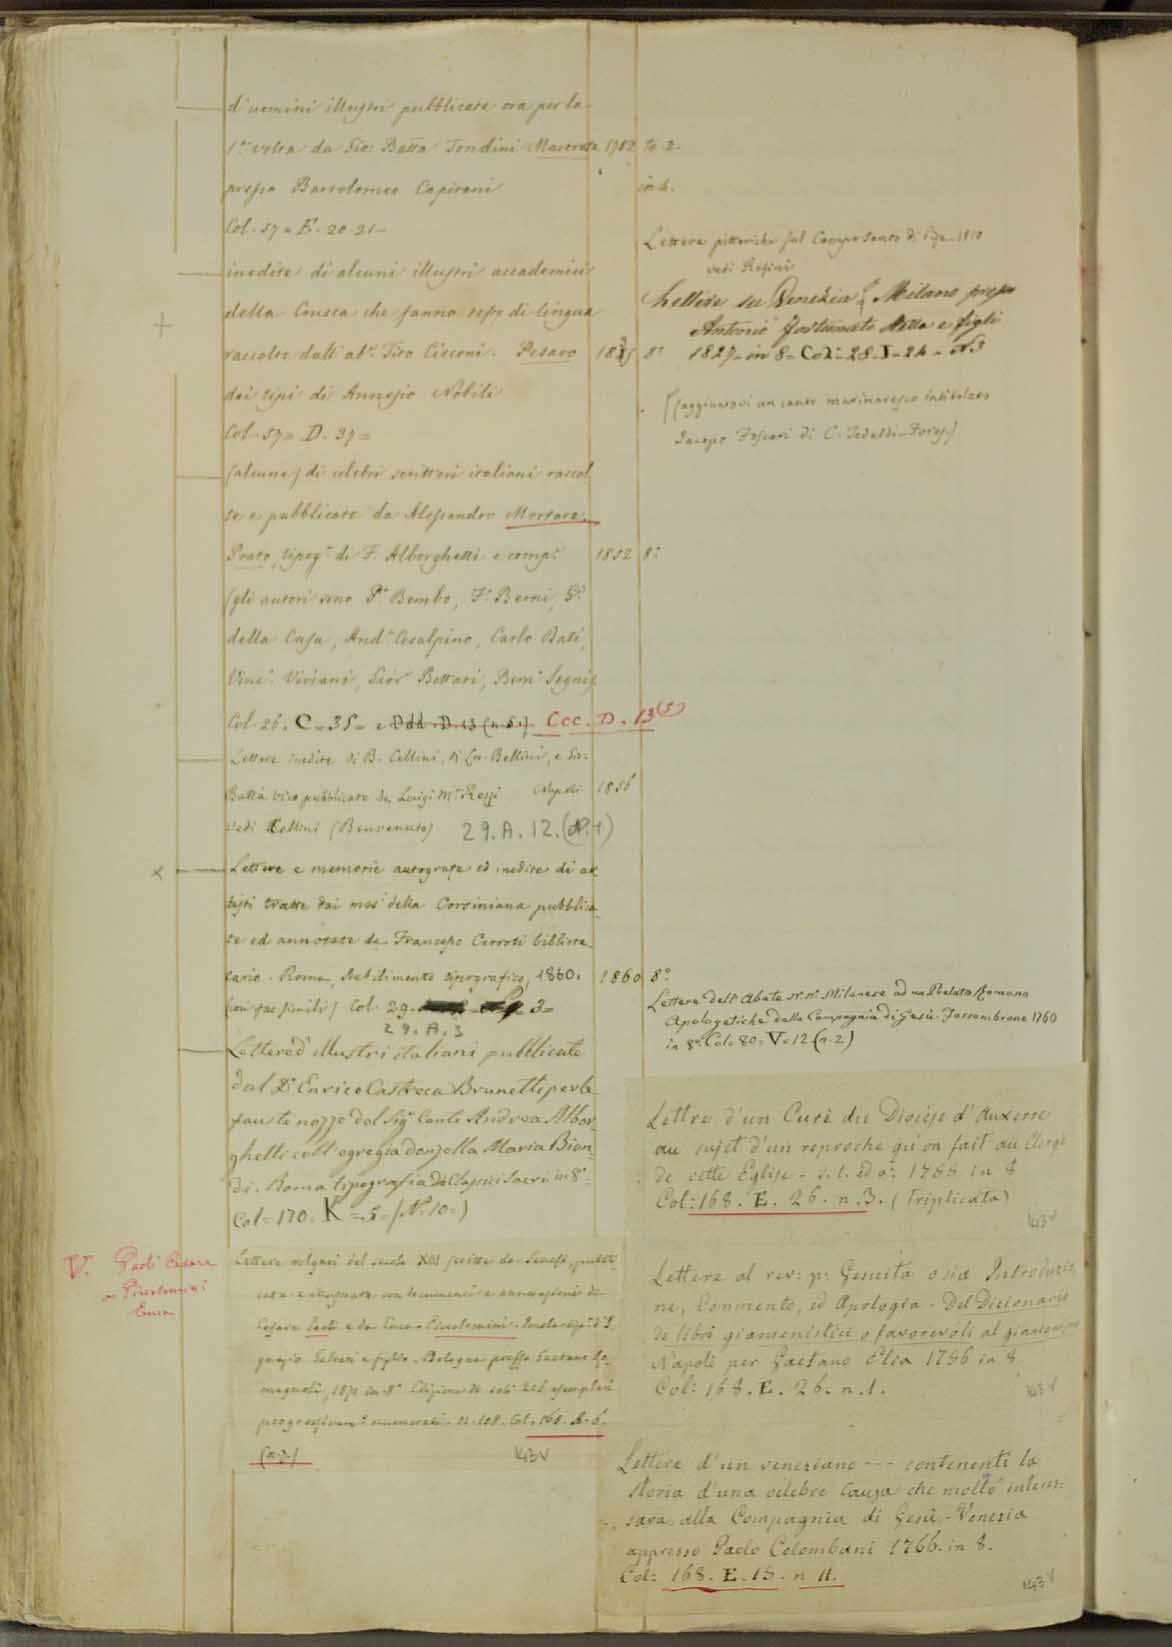 d'uomini illustri pubblicate ora per la
1.ª volta da Gio: Batta Tondini Macerata 1782 to. 2.
presso Bartolomeo Capitani in 4.
Col. 57 = E. 20-21 =
inedite di alcuni illustri accademici
della Crusca che fanno testo di lingua
raccolte dall'ab.e Tito Cicconi. Pesaro 8.º
dai tipi di Annesio Nobili
Col. 57 = D. 37 =
(alcune) di celebri scrittori italiani raccol
te e pubblicate da Alessandro Mortara
Prato, tipog.ª di F. Alberghetti e comp.i 1852 8.º
(gli autori sono P.º Bembo, F.º Berni, G.i
della Casa, And.ª Cesalpino, Carlo Dati,
Vinc.º Viviani, Giov. Bottari, Bern.º Segni).
Col. 26. C = 35 = e Ddd. D. 13 (n. 5.) Ccc. D. 13 (5)
Lettere inedite di B. Cellini, di Lor. Bellini, e Gio:
Batta Vico pubblicate da Luigi M.ª Rezzi Napoli 1856
vedi Cellini (Benvenuto) 29. A. 12. (N. 1)
Lettere e memorie autografe ed inedite di ar
tisti tratte dai mss della Corsiniana pubblica-
te ed annotate da Francesco Cerroti bibliote
cario. Roma, Stabilimento tipografico, 1860. 1860 8.º
(con fac simili) Col. 29. 3 =
29. A. 3
Lettere d'illustri italiani pubblicate
dal D.r Enrico Castreca Brunetti per le
fauste nozze del Sig.r Conte Andrea Albor-
ghetti coll'egregia donzella Maria Bian-
di. Roma tipografia di Classici Sacri in 8.º
Col = 170. K = 5 = (N.º 10 =)
V. Paoli Cesare
e Piccolomini
Enea
Lettere volgari del secolo XIII scritte da Senesi, pubbli
cate e illustrate con documenti e annotazioni da
Cesare Paoli e da Enea Piccolomini.
Bologna presso Gaetano Ro-
magnoli, 1871 in 8.º Edizione di soli 202 esemplari
progressivam.e numerati - N. 108. Col. 168. A. 6.
(n. 7.) 143 V
Lettere pittoriche sul Camposanto di Pisa 1810
vedi Rosini
Lettere su Venezia. Milano presso
Antonio Fortunato Stella e figli
1827 - in 8 = Col: 28. I = 24 = N.3
(aggiuntovi un canto marinaresco intitolato
Jacopo Foscari di C. Tedaldi-Fores.)
Lettere dell'Abate N. N. Milanese ad un Prelato Romano
Apologetiche della Compagnia di Gesù. Fossombrone 1760
in 8º. Col = 80 = V = 12 (n. 2)
Lettre d'un Curé du Diocèse d'Auxerre
au sujet d'un reproche qu'on fait au Clergé
de cette Eglise - s. l. ed a: 1755 in 8
Col: 168. E. 26. n. 3. (Triplicata)
143 V
Lettera al rev: p: Gesuita o sia Introduzio
ne, Commento, ed Apologia. Del Dizionario
de libri giansenistici o favorevoli al giansenismo
Napoli per Gaetano Elia 1756 in 8
Col: 168. E. 26. n. 1.
143 V
Lettere d'un veneziano --- contenenti la
storia d'una celebre causa che molto interes:
sava alla Compagnia di Gesù - Venezia
appresso Paolo Colombani 1766. in 8.
Col: 168. E. 15. n 11.
143 V